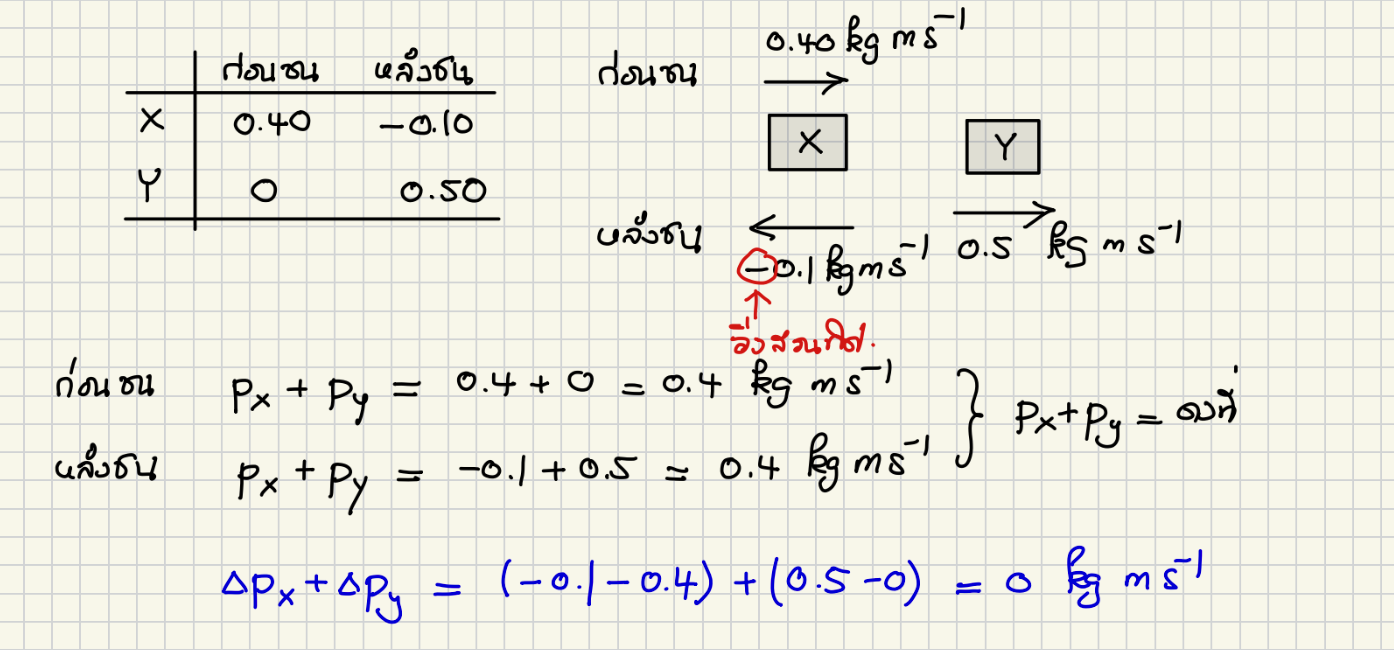 ก่อนชน หลังชน
X 0.40 -0.10
Y 0 0.50
ก่อนชน 0.40 kg m s⁻¹
X Y
หลังชน -0.1 kg m s⁻¹ 0.5 kg m s⁻¹
ก่อนชน Px + Py = 0.4 + 0 = 0.4 kg m s⁻¹
หลังชน Px + Py = -0.1 + 0.5 = 0.4 kg m s⁻¹
} Px + Py = คงที่
ΔPx + ΔPy = (-0.1 - 0.4) + (0.5 - 0) = 0 kg m s⁻¹